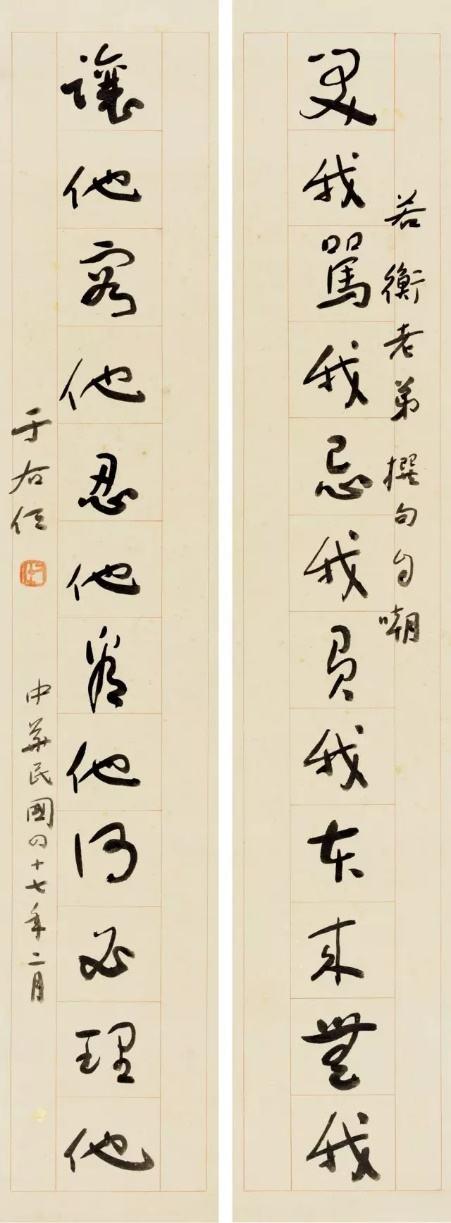 若衡老弟撰句自嘲
笑我駡我忌我負我本來無我
讓他容他忍他看他何必理他
中華民國四十七年二月
于右任